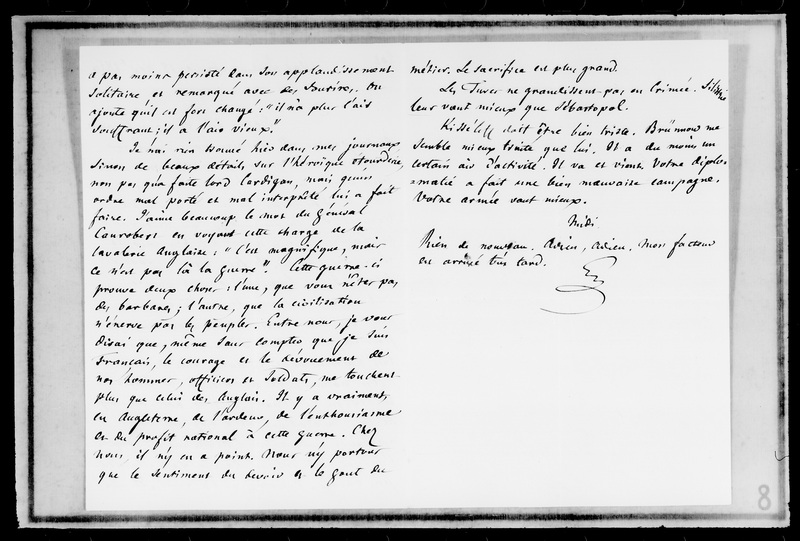 a pas moins persisté dans son applaudissement
solitaire et remarqué avec des sourires. On
ajoute qu'il est fort changé : "il n'a plus l'air
souffrant ; il a l'air vieux".
Je n'ai rien trouvé hier dans mes journaux
sinon de beaux détails sur l'héroïque étourderie,
non pas qu'a faite lord Cardigan, mais qu'un
ordre mal porté et mal interprêté lui a fait
faire. J'aime beaucoup le mot du général
Canrobert en voyant cette charge de la
cavalerie Anglaise : "C'est magnifique, mais
ce n'est pas là la guerre". Cette guerre-ci
prouve deux choses : l'une, que vous n'êtes pas
des barbares ; l'autre, que la civilisation
n'énerve pas les peuples. Entre nous, je vous
dirai que, même sans compter que je suis
Français, le courage et le dévouement de
nos hommes, officiers et soldats, me touchent
plus que celui des Anglais. Il y a vraiment,
en Angleterre, de l'ardeur, de l'enthousiasme
et du profit national à cette guerre. Chez
nous, il n'y en a point. Nous n'y portons
que le sentiment du devoir et le goût du
métier. Le sacrifice est plus grand.
Les Turcs ne grandissent pas en Crimée. Silistrie
leur vaut mieux que Sébastopol.
Kisséleff doit être bien triste. Brünnow me
semble mieux traité que lui. Il a du moins un
certain air d'activité. Il va et vient. Votre diplo-
-matie a fait une bien mauvaise campagne.
Votre armée vaut mieux.
Midi
Rien de nouveau. Adieu, Adieu. Mon facteur
est arrivé très tard.
8